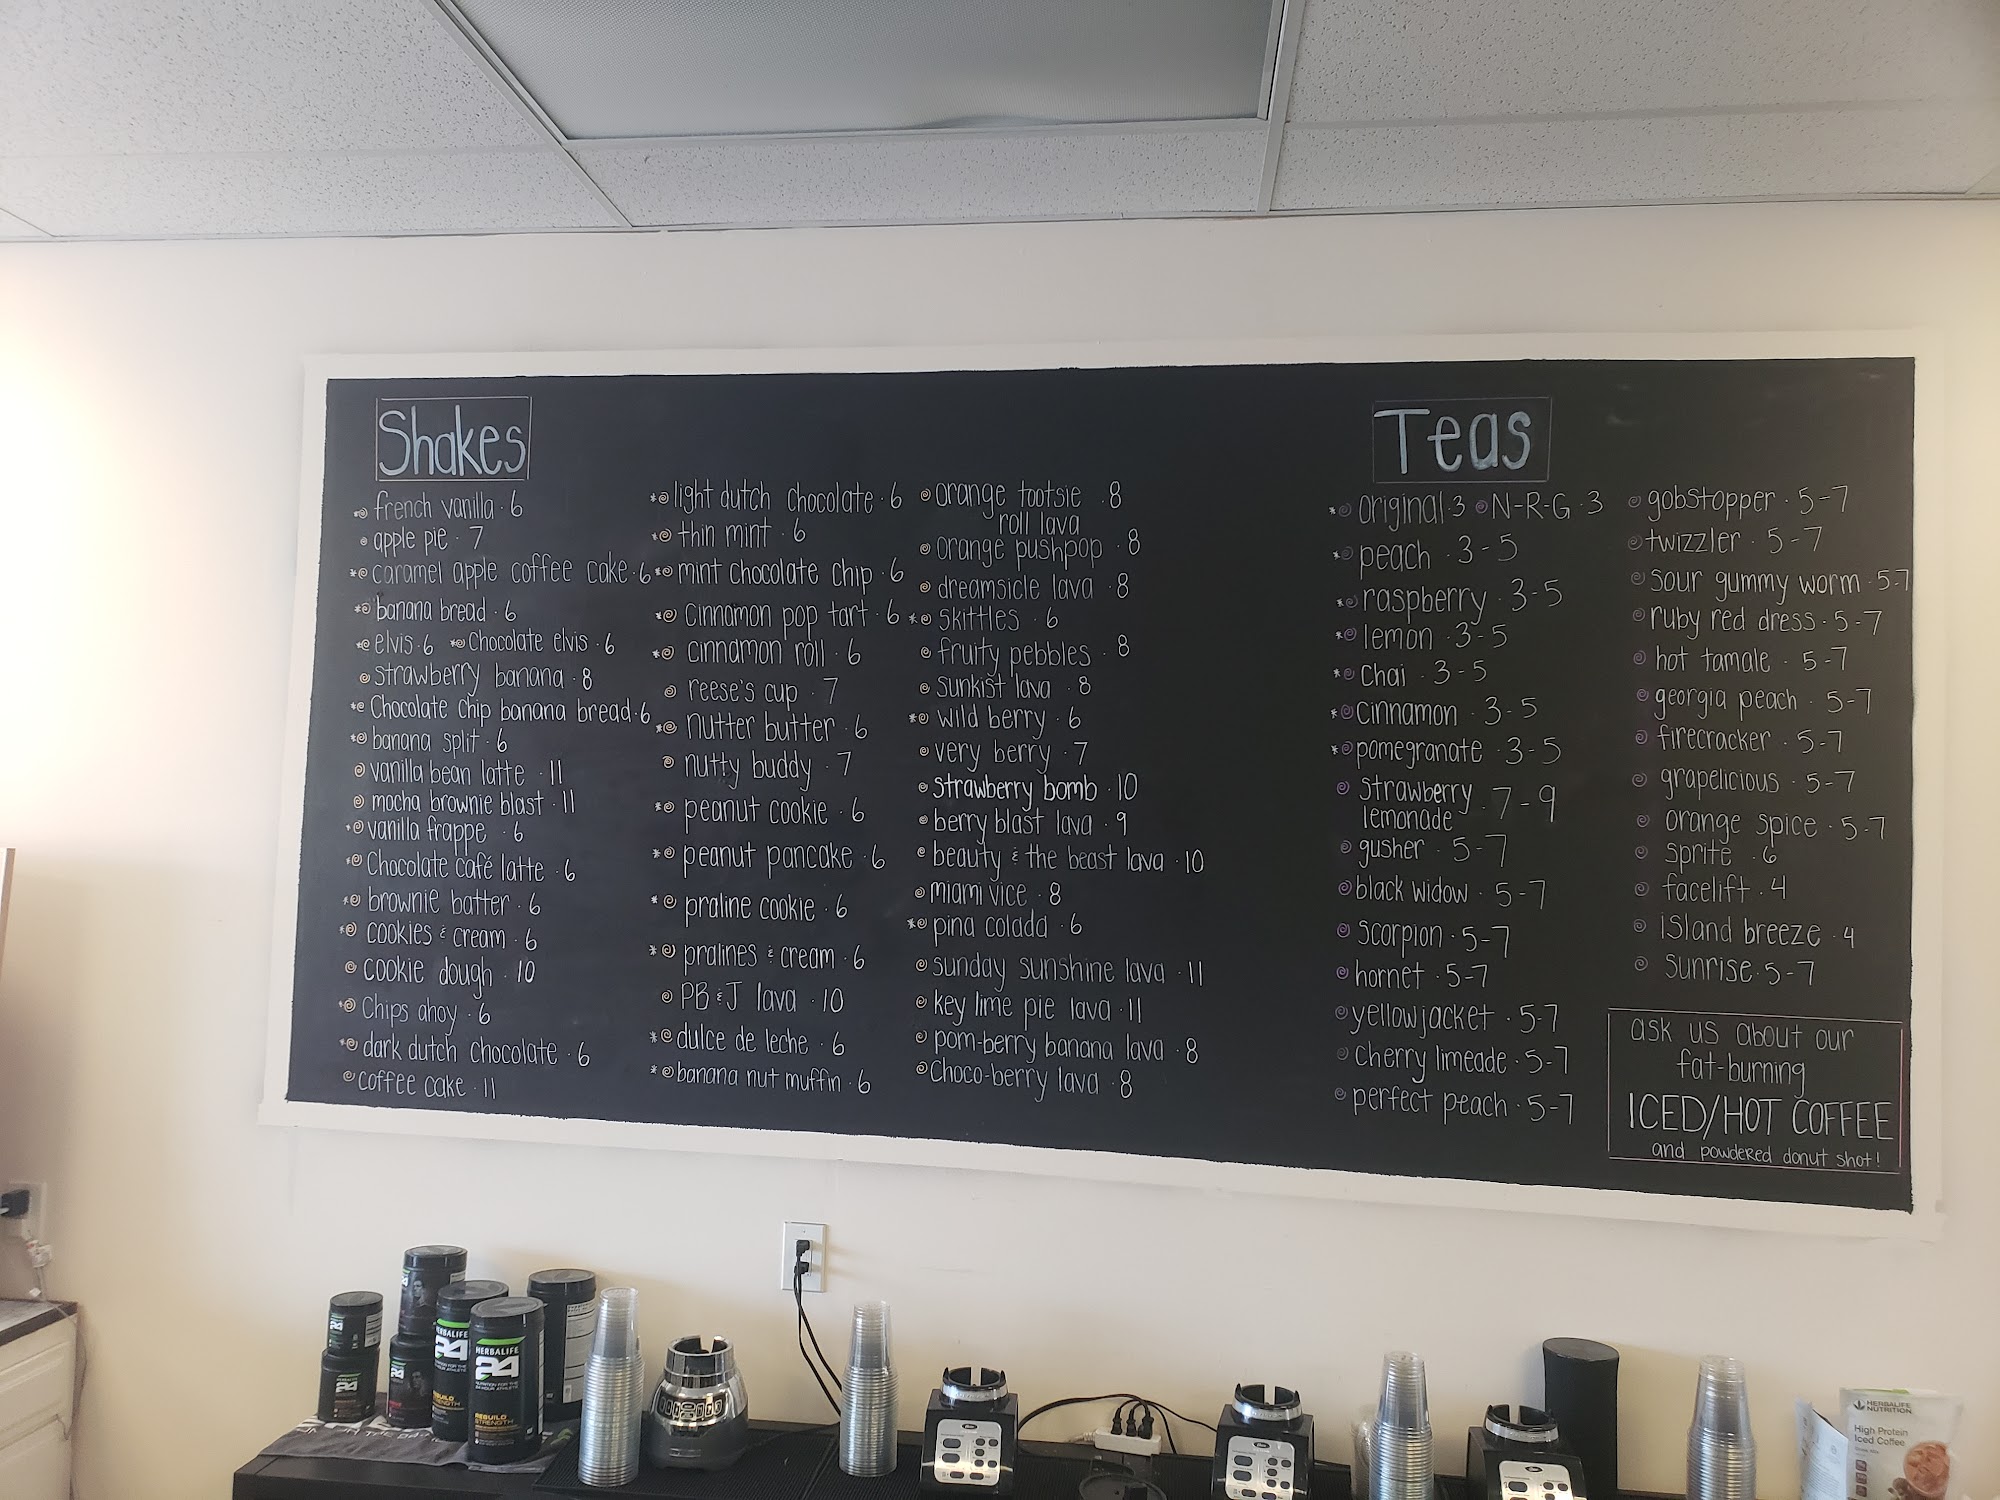 Shakes
french vanilla · 6
apple pie · 7
* caramel apple coffee cake · 6
* banana bread · 6
* elvis · 6 * Chocolate elvis · 6
strawberry banana · 8
* Chocolate chip banana bread · 6
* banana split · 6
vanilla bean latte · 11
mocha brownie blast · 11
* vanilla frappe · 6
* Chocolate café latte · 6
* brownie batter · 6
* cookies & cream · 6
cookie dough · 10
* Chips ahoy · 6
* dark dutch chocolate · 6
coffee cake · 11
* light dutch chocolate · 6
* thin mint · 6
* mint chocolate chip · 6
* cinnamon pop tart · 6
* cinnamon roll · 6
reese's cup · 7
* nutter butter · 6
nutty buddy · 7
* peanut cookie · 6
* peanut pancake · 6
* praline cookie · 6
* pralines & cream · 6
PB & J lava · 10
* dulce de leche · 6
* banana nut muffin · 6
orange tootsie · 8
roll lava
orange pushpop · 8
dreamsicle lava · 8
* skittles · 6
fruity pebbles · 8
sunkist lava · 8
* wild berry · 6
very berry · 7
strawberry bomb · 10
berry blast lava · 9
beauty & the beast lava · 10
miami vice · 8
* pina colada · 6
sunday sunshine lava · 11
key lime pie lava · 11
pom-berry banana lava · 8
Choco-berry lava · 8
Teas
* original · 3 N-R-G · 3
* peach · 3-5
* raspberry · 3-5
* lemon · 3-5
* Chai · 3-5
* cinnamon · 3-5
* pomegranate · 3-5
strawberry · 7-9
lemonade
gusher · 5-7
black widow · 5-7
scorpion · 5-7
hornet · 5-7
yellowjacket · 5-7
cherry limeade · 5-7
perfect peach · 5-7
gobstopper · 5-7
twizzler · 5-7
sour gummy worm · 5-7
ruby red dress · 5-7
hot tamale · 5-7
georgia peach · 5-7
firecracker · 5-7
grapelicious · 5-7
orange spice · 5-7
sprite · 6
facelift · 4
island breeze · 4
sunrise · 5-7
ask us about our
fat-burning
ICED/HOT COFFEE
and powdered donut shot!
24
24
HERBALIFE
24
REBUILD
STRENGTH
HERBALIFE
24
REBUILD
STRENGTH
HERBALIFE
NUTRITION
High Protein
Iced Coffee